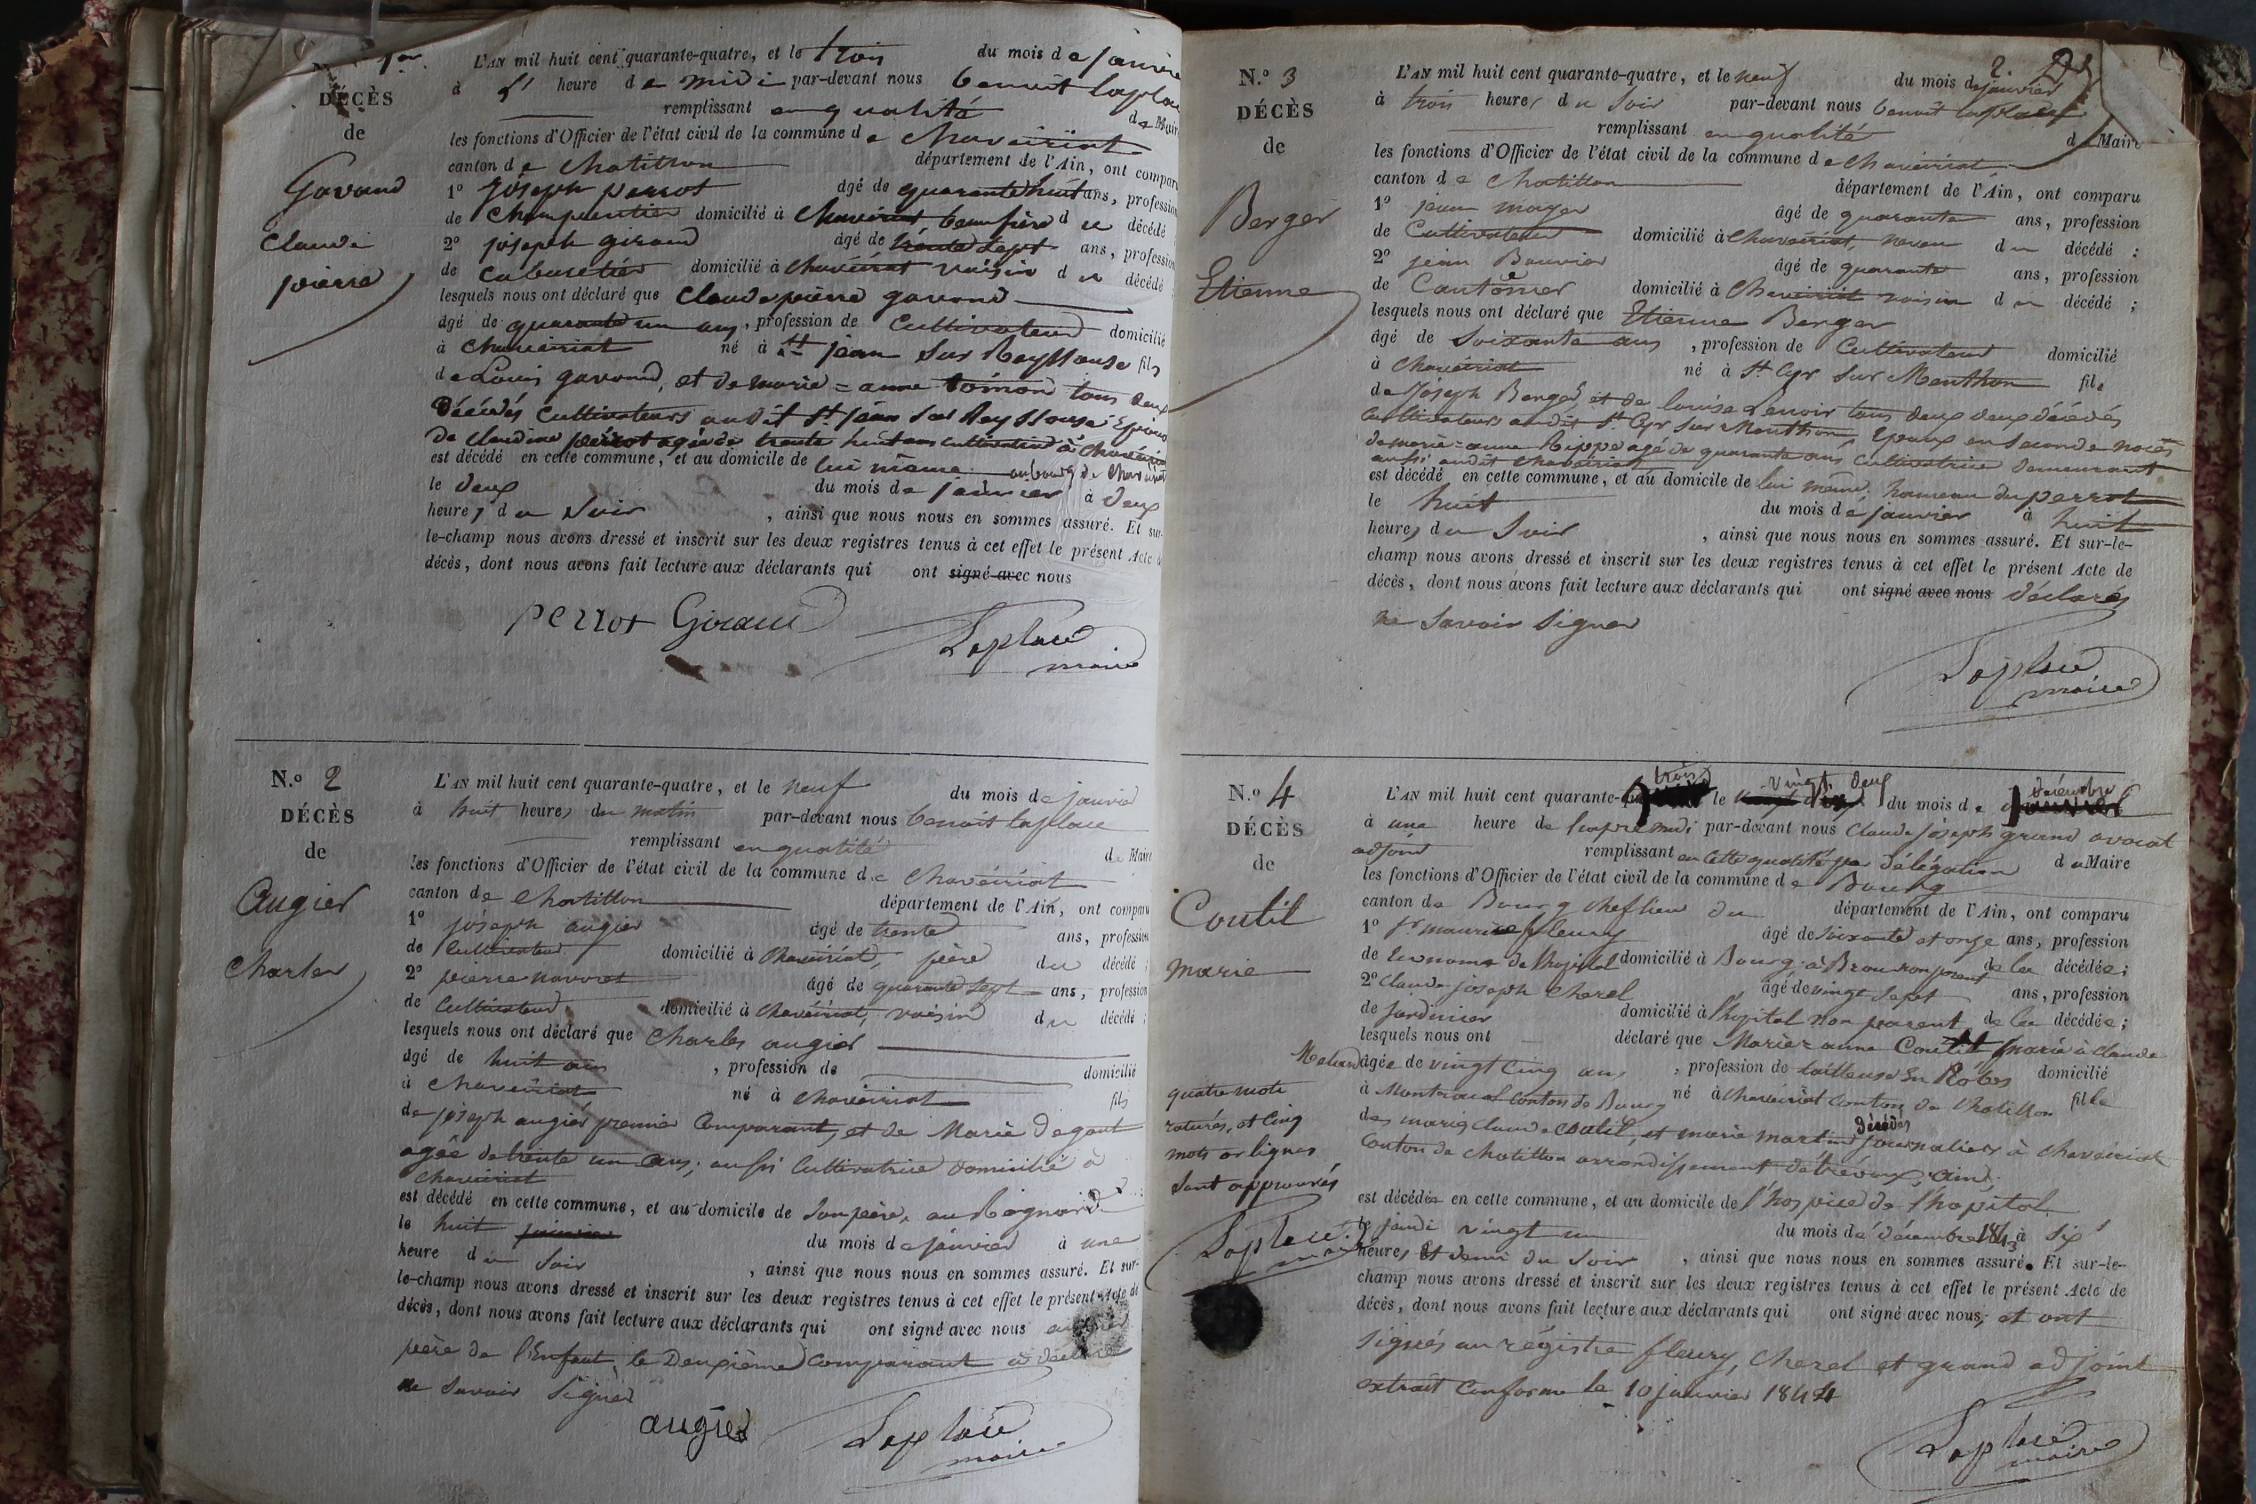 N.º 1er
DÉCÈS
de
Gavand
Claude
pierre
L'AN mil huit cent quarante-quatre, et le trois du mois de janvier
à l' heure de midi par-devant nous benoit laplace
remplissant en qualité de Maire
les fonctions d'Officier de l'état civil de la commune de chaveiriat
canton de chatillon département de l'Ain, ont comparu
1º joseph perrot âgé de quarante huit ans, profession
de charpentier domicilié à chaveiriat beaufrère du décédé
2º joseph giraud âgé de trente sept ans, profession
de cabaretier domicilié à chaveiriat voisin du décédé
lesquels nous ont déclaré que Claude pierre gavand
âgé de quarante un ans, profession de Cultivateur domicilié
à chaveiriat né à St jean Sur Reyssouse fils
de Louis gavand, et de marie=anne tous deux
Décédés Cultivateurs audit St jean Sur Reyssouse Epoux
De claudine perrot agée de trente huit ans cultivatrice à chaveiriat
est décédé en cette commune, et au domicile de lui même au bourg de chaveiriat
le deux du mois de janvier à deux
heures du Soir, ainsi que nous nous en sommes assuré. Et sur-
le-champ nous avons dressé et inscrit sur les deux registres tenus à cet effet le présent Acte de
décès, dont nous avons fait lecture aux déclarants qui ont signé avec nous
perrot Giraud Laplace
maire
N.º 2
DÉCÈS
de
Augier
Charles
L'AN mil huit cent quarante-quatre, et le neuf du mois de janvier
à huit heures du matin par-devant nous benoit laplace
remplissant en qualité de Maire
les fonctions d'Officier de l'état civil de la commune de chaveiriat
canton de chatillon département de l'Ain, ont comparu
1º joseph augier âgé de trente ans, profession
de Cultivateur domicilié à chaveiriat, père du décédé ;
2º pierre navoret âgé de quarante sept ans, profession
de Cultivateur domicilié à chaveiriat, voisin du décédé ;
lesquels nous ont déclaré que Charles augier
âgé de huit ans, profession de domicilié
à chaveiriat né à chaveiriat fils
de joseph augier premier Comparant, et de Marie degout
agée de trente un ans, aussi Cultivatrice domicilié à
chaveiriat
est décédé en cette commune, et au domicile de Son père, au
le huit du mois de janvier à une
heure du Soir, ainsi que nous nous en sommes assuré. Et sur-
le-champ nous avons dressé et inscrit sur les deux registres tenus à cet effet le présent Acte de
décès, dont nous avons fait lecture aux déclarants qui ont signé avec nous
père de l'Enfant, le Deuxième comparant a déclaré
ne Savoir Signer
augier Laplace
maire
2.
N.º 3
DÉCÈS
de
Berger
Etienne
L'AN mil huit cent quarante-quatre, et le neuf du mois de janvier
à trois heures du Soir par-devant nous benoit laplace
remplissant en qualité de Maire
les fonctions d'Officier de l'état civil de la commune de chaveiriat
canton de chatillon département de l'Ain, ont comparu
1º jean moyer âgé de quarante ans, profession
de Cultivateur domicilié à chaveiriat, neveu du décédé :
2º jean Bouvier âgé de quarante ans, profession
de Cantonier domicilié à Chaveiriat voisin du décédé ;
lesquels nous ont déclaré que Etienne Berger
âgé de Soixante ans, profession de Cultivateur domicilié
à chaveiriat né à St Cyr Sur Menthon fils
de Joseph Berger et de louise Lenoir tous deux deux décédés
Cultivateurs audit St Cyr Sur Menthon Epoux en seconde noces
de marie=anne Rippe agé de quarante ans Cultivatrice demeurant
aussi audit chaveiriat
est décédé en cette commune, et au domicile de lui même, hameau du perrot
le huit du mois de janvier à huit
heures du Soir, ainsi que nous nous en sommes assuré. Et sur-le-
champ nous avons dressé et inscrit sur les deux registres tenus à cet effet le présent Acte de
décès, dont nous avons fait lecture aux déclarants qui ont signé avec nous déclarés
ne Savoir Signer
Laplace
maire
N.º 4
DÉCÈS
de
Coutil
marie
quatre mots
raturés, et Cinq
mots
Sont approuvés
Laplace
maire
L'AN mil huit cent quarante-trois le vingt deux du mois de décembre
à une heure de l'apremidi par-devant nous Claude joseph grand avocat
adjoint remplissant en Cette qualité par délégation du Maire
les fonctions d'Officier de l'état civil de la commune de Bourg
canton de Bourg chef lieu du département de l'Ain, ont comparu
1º maurice fleury âgé de Soixante et onze ans, profession
de Econome de l'hopital domicilié à Bourg à Brou non parent de la décédée ;
2º Claude joseph Cherel âgé de vingt Sept ans, profession
de jardinier domicilié à l'hopital non parent de la décédée ;
lesquels nous ont déclaré que Marie anne Coutil mariée à claude
âgée de vingt Cinq ans, profession de tailleuse En Robes domicilié
à Montracol Canton de Bourg né à chaveiriat Canton de Chatillon fille
des mariés claude coutil, et marie martin décédés journaliers à chaveiriat
Canton de chatillon arrondissement de trévoux, ain.
est décédée en cette commune, et au domicile de l'hospice de l'hopital
le jeudi vingt un du mois de décembre 1843 à Six
heures Et demi du Soir, ainsi que nous nous en sommes assuré. Et sur-le-
champ nous avons dressé et inscrit sur les deux registres tenus à cet effet le présent Acte de
décès, dont nous avons fait lecture aux déclarants qui ont signé avec nous, et ont
Signés au régistre fleury, Cherel et grand adjoint
extrait Conforme le 10 janvier 1844
Laplace
maire